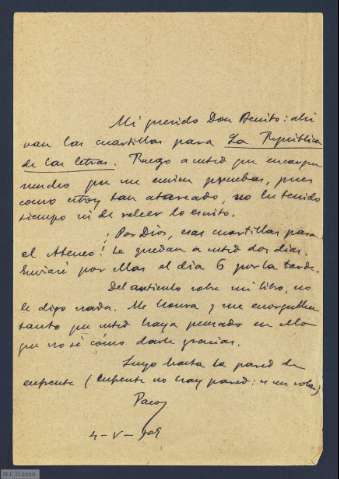 Mi querido Don Benito: ahí
van las cuartillas para La República
de las letras. Ruego a usted que encarguen
mucho que me envien pruebas, pues
como estoy tan atareado, no he tenido
tiempo ni de releer lo escrito.
¡Por Dios, esas cuartillas para
el Ateneo! Le quedan a usted dos días.
Enviaré por ellas el día 6 por la tarde.
Del artículo sobre mi libro, no
le digo nada. Me honra y me enorgullece
tanto que usted haya pensado en ello
que no sé cómo darle gracias.
Suyo hasta la pared de
enfrente (enfrente no hay pared:
Paco
4-V-905